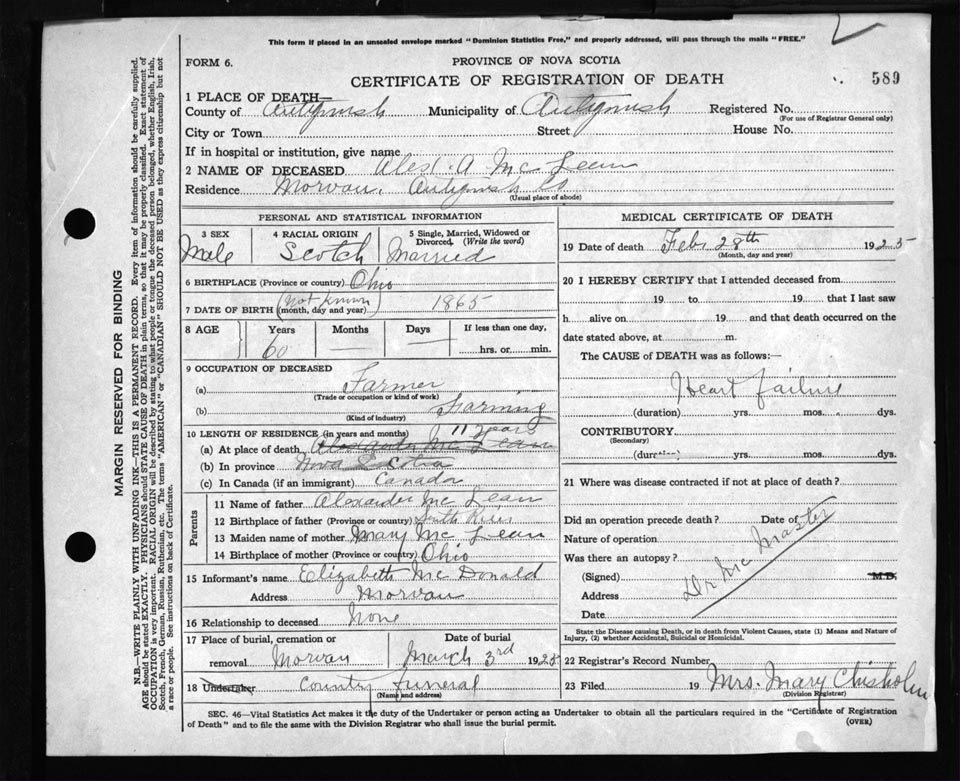 This form if placed in an unsealed envelope marked "Dominion Statistics Free," and properly addressed, will pass through the mails "FREE."
FORM 6.
PROVINCE OF NOVA SCOTIA
CERTIFICATE OF REGISTRATION OF DEATH
589
1 PLACE OF DEATH—
County of Antigonish Municipality of Antigonish Registered No.
(For use of Registrar General only)
City or Town Street House No.
If in hospital or institution, give name
2 NAME OF DECEASED Alex. A Mc Lean
Residence Morvan, Antigonish Co
(Usual place of abode)
PERSONAL AND STATISTICAL INFORMATION
3 SEX 4 RACIAL ORIGIN 5 Single, Married, Widowed or Divorced. (Write the word)
Male Scotch Married
6 BIRTHPLACE (Province or country) Ohio
7 DATE OF BIRTH (month, day and year) (not known) 1865
8 AGE Years Months Days If less than one day,
60 — — hrs. or min.
9 OCCUPATION OF DECEASED
(a) Farmer
(Trade or occupation or kind of work)
(b) Farming
(Kind of industry)
10 LENGTH OF RESIDENCE (in years and months) 11 years
(a) At place of death Alexander Mc Lean
(b) In province Nova Scotia
(c) In Canada (if an immigrant) Canada
Parents
11 Name of father Alexander Mc Lean
12 Birthplace of father (Province or country) South River
13 Maiden name of mother Mary Mc Lean
14 Birthplace of mother (Province or country) Ohio
15 Informant's name Elizabeth Mc Donald
Address Morvan
16 Relationship to deceased None
17 Place of burial, cremation or removal Morvan Date of burial March 3rd 1925
18 Undertaker County funeral
(Name and address)
MEDICAL CERTIFICATE OF DEATH
19 Date of death Feb 28th 1925
(Month, day and year)
20 I HEREBY CERTIFY that I attended deceased from
19 to 19 that I last saw
h alive on 19 and that death occurred on the
date stated above, at m.
The CAUSE of DEATH was as follows:—
Heart failure
(duration) yrs. mos. dys.
CONTRIBUTORY
(Secondary)
(duration) yrs. mos. dys.
21 Where was disease contracted if not at place of death?
Did an operation precede death? Date of
Nature of operation
Was there an autopsy?
(Signed) M.D.
Dr Mc Master
Address
Date
State the Disease causing Death, or in death from Violent Causes, state (1) Means and Nature of
Injury, (2) whether Accidental, Suicidal or Homicidal.
22 Registrar's Record Number
23 Filed 19 Mrs. Mary Chisholm
(Division Registrar)
SEC. 46—Vital Statistics Act makes it the duty of the Undertaker or person acting as Undertaker to obtain all the particulars required in the "Certificate of Registration
of Death" and to file the same with the Division Registrar who shall issue the burial permit.
(OVER)
MARGIN RESERVED FOR BINDING
N.B.—WRITE PLAINLY WITH UNFADING INK—THIS IS A PERMANENT RECORD. Every item of information should be carefully supplied.
AGE should be stated EXACTLY. PHYSICIANS should STATE CAUSE OF DEATH in plain terms, so that it may be properly classified. Exact statement of
OCCUPATION is very important. RACIAL ORIGIN will be described by stating to what people or tongue the deceased person belonged, whether English, Irish,
Scotch, French, German, Russian, Ruthenian, etc. The terms "AMERICAN" or "CANADIAN" SHOULD NOT BE USED as they express citizenship but not
a race or people. See instructions on back of Certificate.